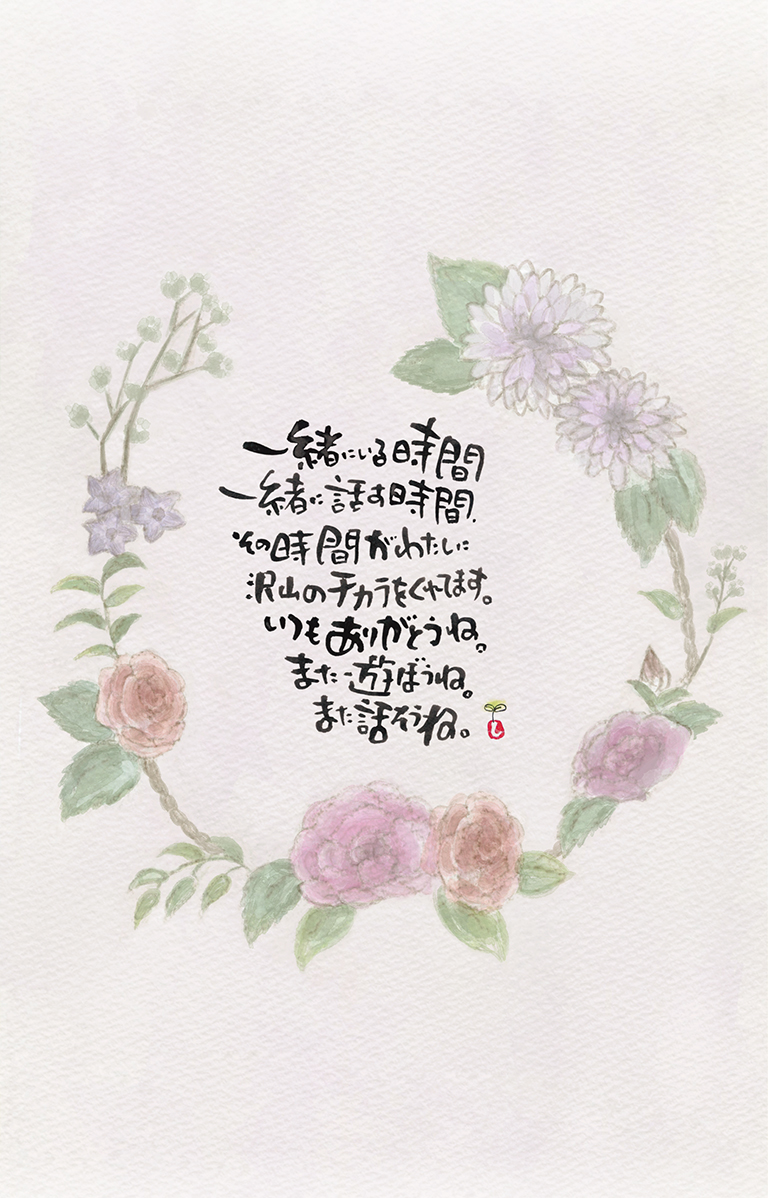 一緒にいる時間
一緒に話す時間、
その時間がわたしに
沢山のチカラをくれてます。
いつもありがとうね。
また遊ぼうね。
また話そうね。
し